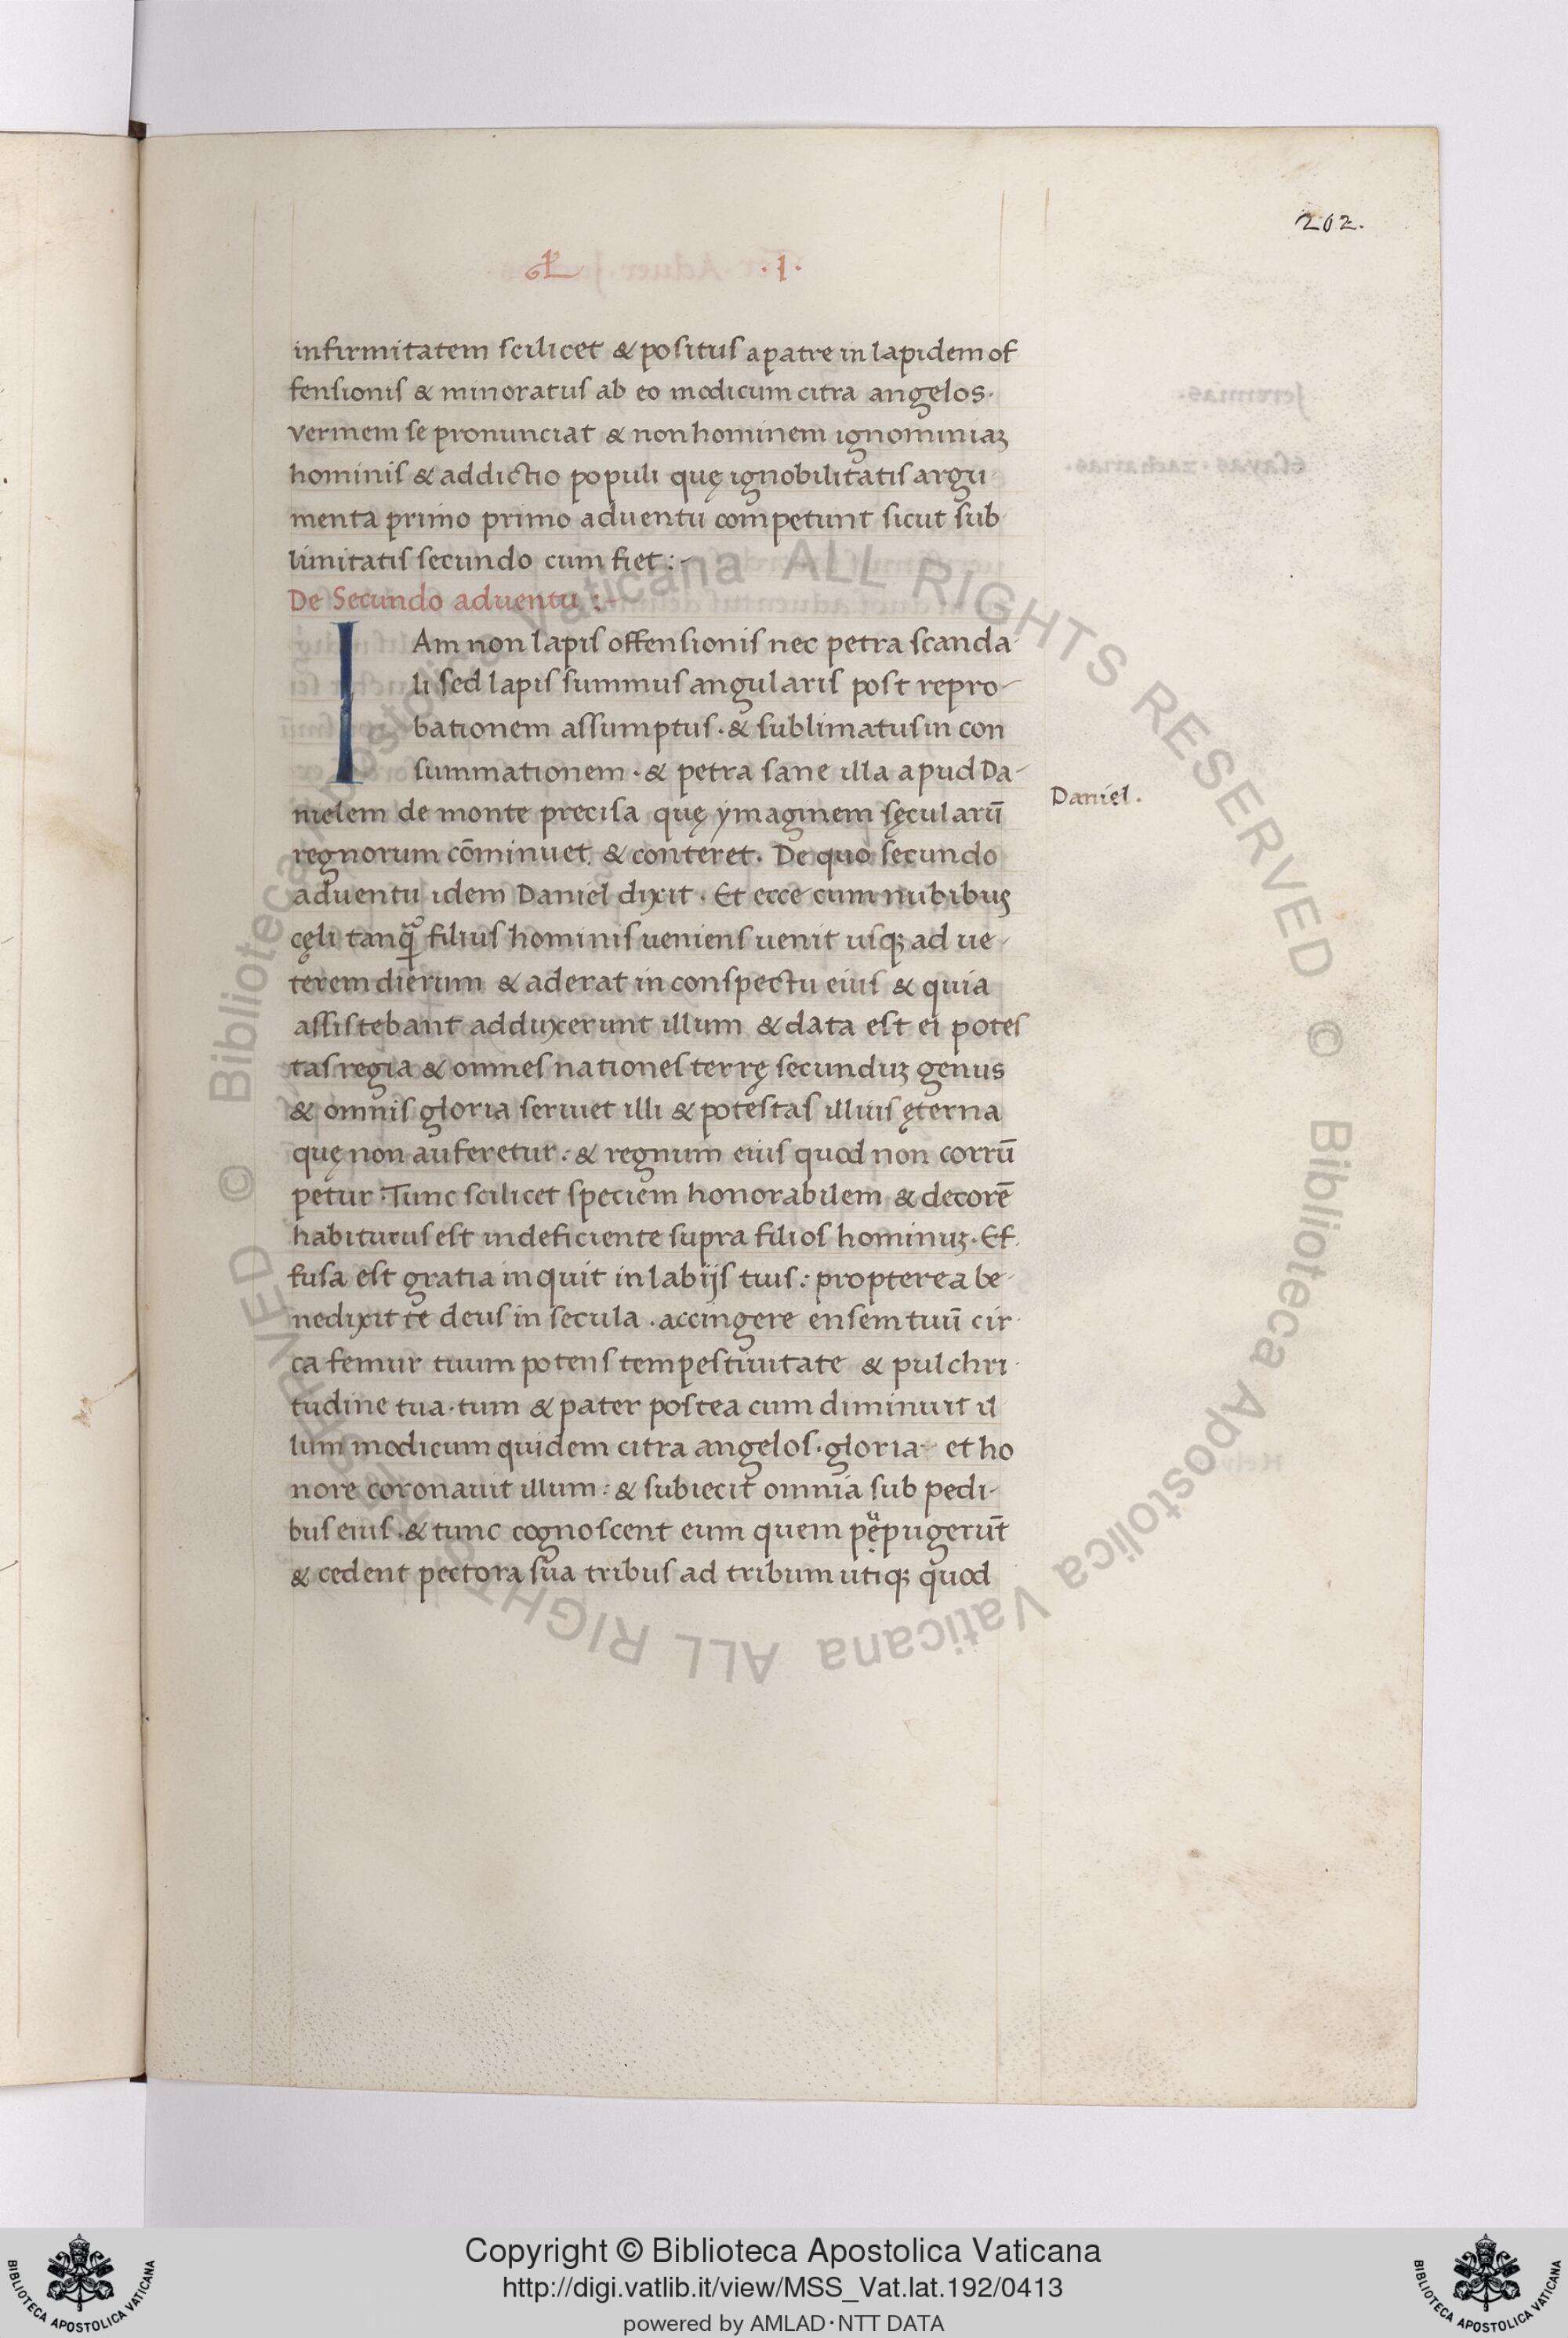 202.
L .I.
infirmitatem scilicet & positus a patre in lapidem of
fensionis & minoratus ab eo modicum citra angelos.
vermem se pronunciat & non hominem ignominiaꝫ
hominis & addictio populi quę ignobilitatis argu-
menta primo primo aduentu competunt sicut sub-
limitatis secundo cum fiet :-
De Secundo aduentu :-
IAm non lapis offensionis nec petra scanda-
li sed lapis summus angularis post repro-
bationem assumptus. & sublimatus in con
summationem. & petra sane illa apud Da-
Daniel.
nielem de monte precisa quę ymaginem sęcularū
regnorum cōminuet. & conteret. De quo secundo
aduentu idem Daniel dixit. Et ecce cum nubibus
cęli tanꝙ filius hominis ueniens uenit usqꝫ ad ue-
terem dierum & aderat in conspectu eius & quia
assistebant adduxerunt illum & data est ei potes
tas regia & omnes nationes terrę secunduꝫ genus
& omnis gloria seruiet illi & potestas illius ęterna
quę non auferetur: & regnum eius quod non corrū
petur. Tunc scilicet speciem honorabilem & decorē
habiturus est indeficiente supra filios hominuꝫ. Ef-
fusa est gratia inquit in labijs tuis: propterea be-
nedixit te deus in secula. accingere ensem tuū cir-
ca femur tuum potens tempestiuitate & pulchri-
tudine tua. tum & pater postea cum diminuit il
lum modicum quidem citra angelos. gloria et ho
nore coronauit illum: & subiecit omnia sub pedi-
bus eius. & tunc cognoscent eum quem pepugerūt
& cedent pectora sua tribus ad tribum utiqꝫ quod
Copyright © Biblioteca Apostolica Vaticana
http://digi.vatlib.it/view/MSS_Vat.lat.192/0413
powered by AMLAD·NTT DATA
BIBLIOTECA APOSTOLICA VATICANA
BIBLIOTECA APOSTOLICA VATICANA
© Biblioteca Apostolica Vaticana ALL RIGHTS RESERVED
© Biblioteca Apostolica Vaticana ALL RIGHTS RESERVED